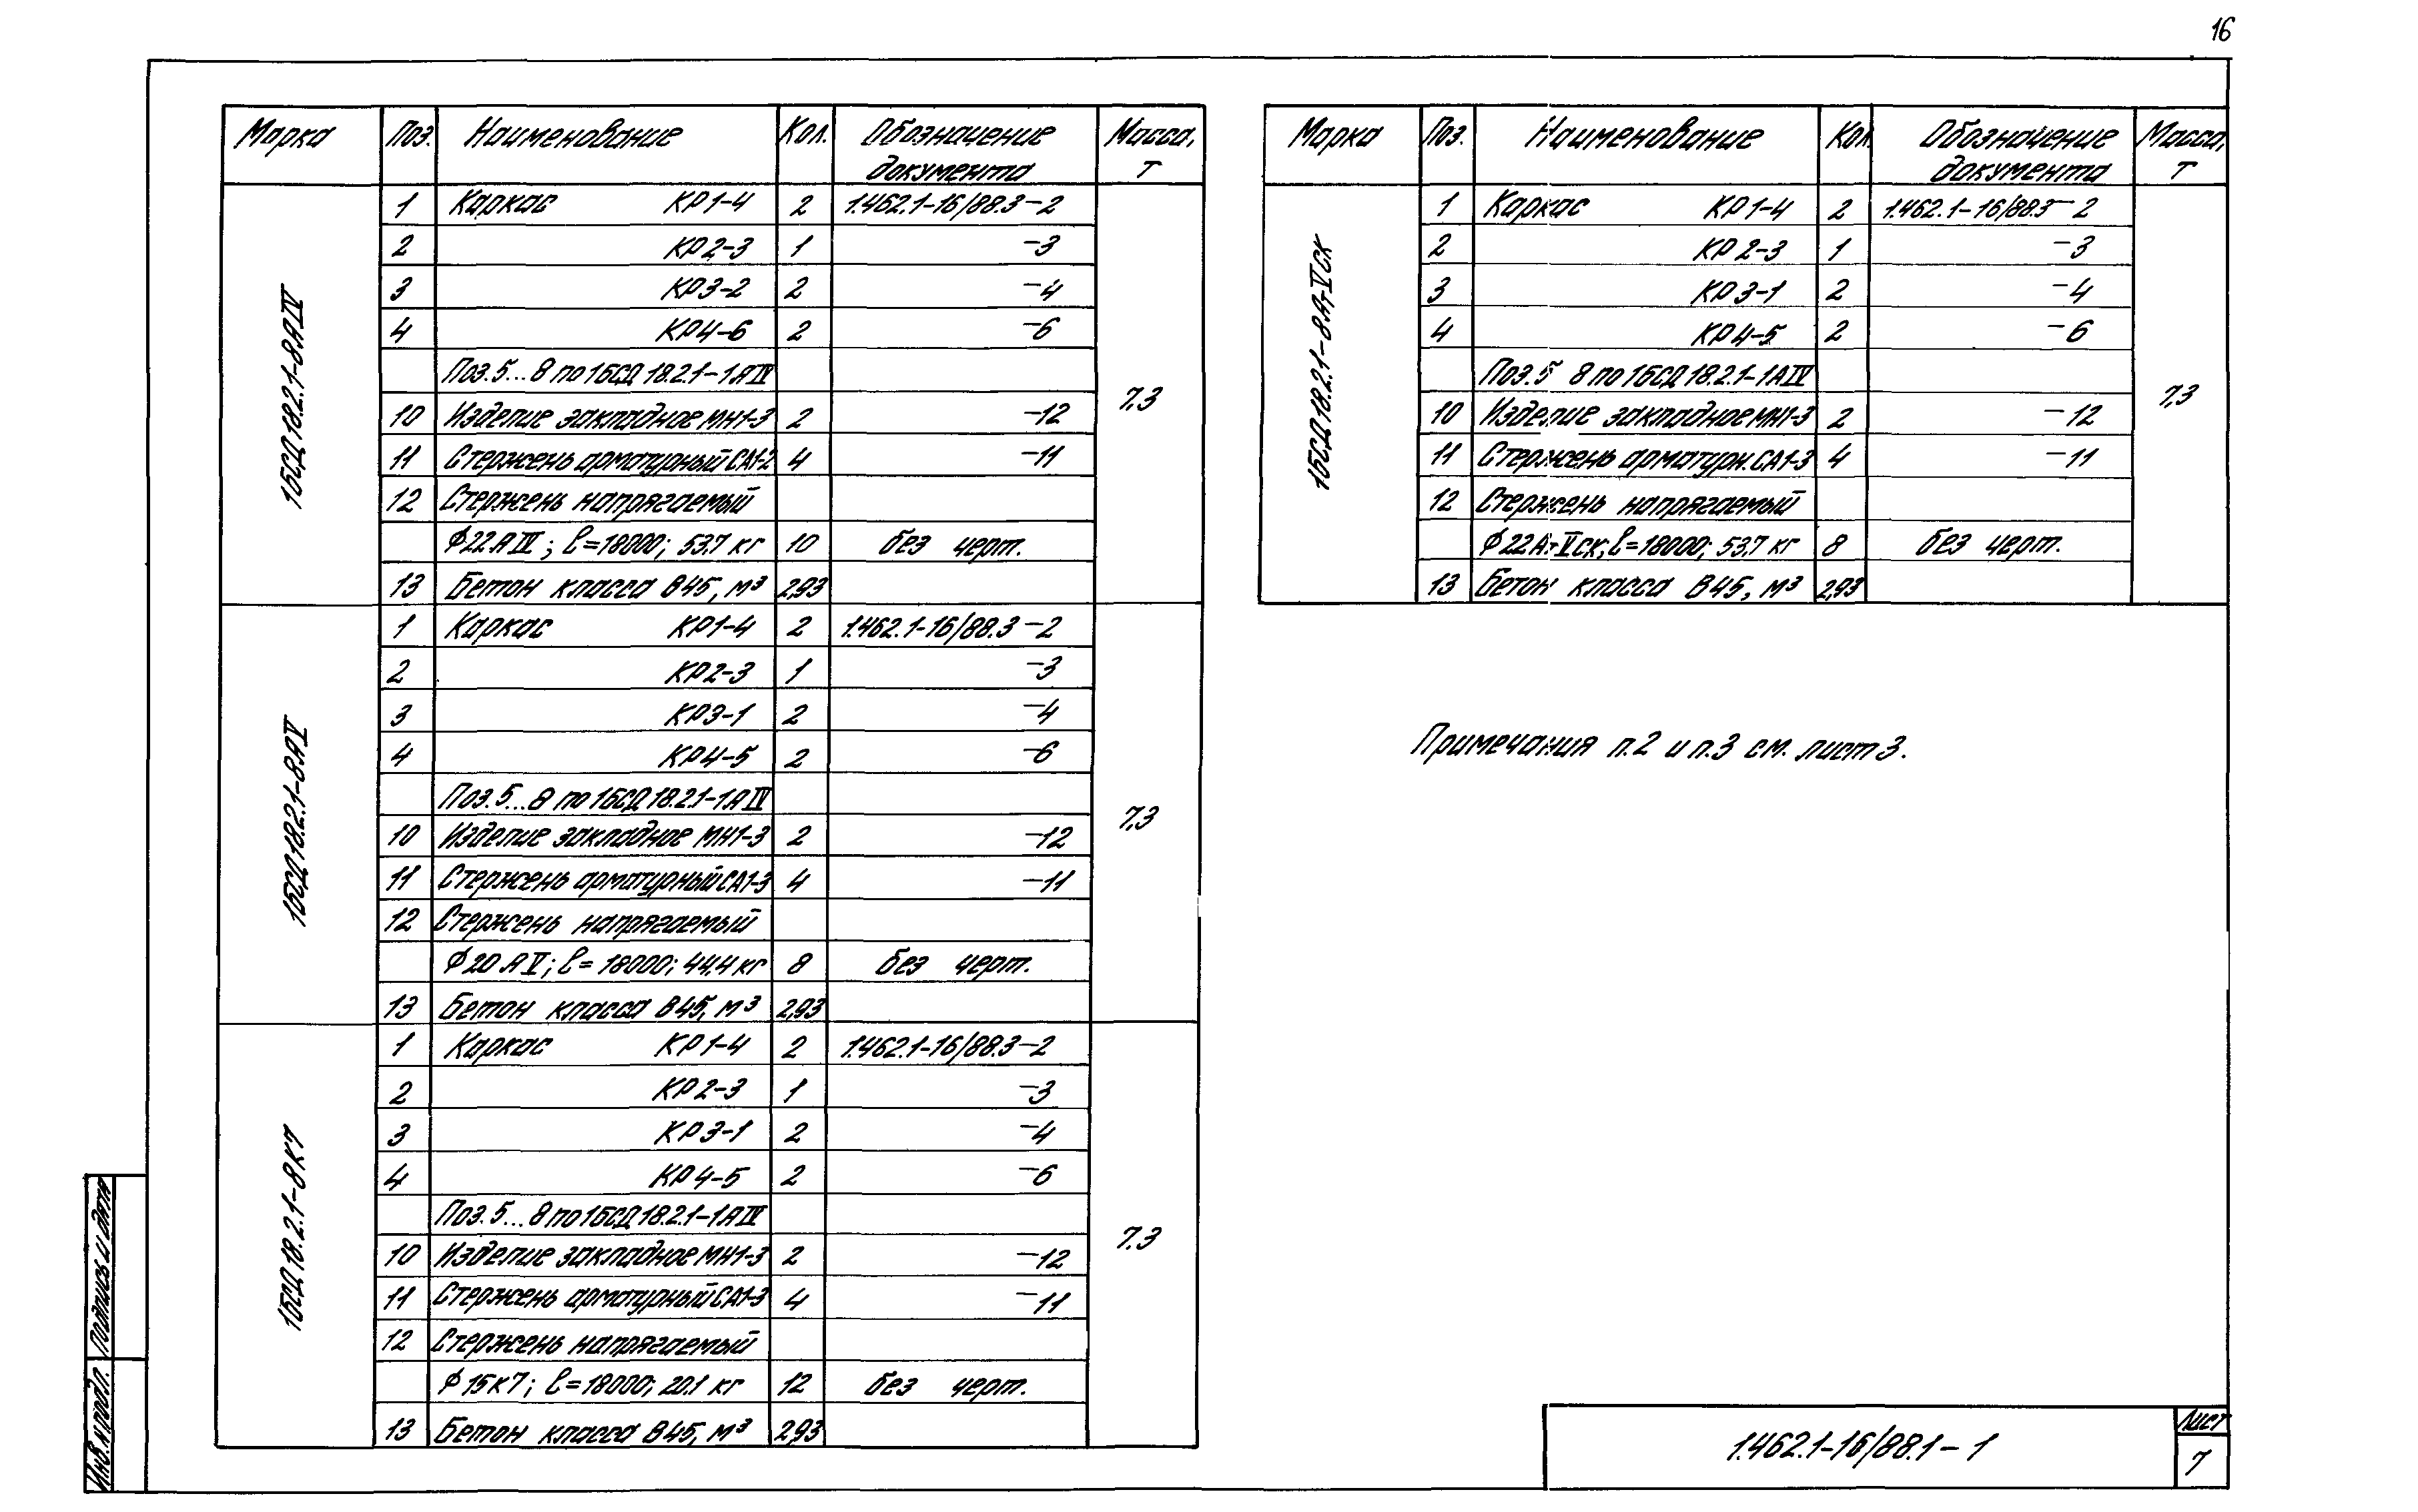 16
Марка Поз. Наименование Кол. Обозначение документа Масса, т
1БСД18.2.1-8АIV
1 Каркас КР1-4 2 1.462.1-16/88.3-2
2 КР2-3 1 -3
3 КР3-2 2 -4
4 КР4-6 2 -6
Поз. 5...8 по 1БСД 18.2.1-1АIV
7,3
10 Изделие закладное МН1-3 2 -12
11 Стержень арматурный СА1-2 4 -11
12 Стержень напрягаемый
ϕ22АIV; ℓ=18000; 53.7 кг 10 без черт.
13 Бетон класса В45, м³ 2,93
1БСД18.2.1-8АV
1 Каркас КР1-4 2 1.462.1-16/88.3-2
2 КР2-3 1 -3
3 КР3-1 2 -4
4 КР4-5 2 -6
Поз. 5...8 по 1БСД 18.2.1-1АIV
7,3
10 Изделие закладное МН1-3 2 -12
11 Стержень арматурный СА1-3 4 -11
12 Стержень напрягаемый
ϕ20АV; ℓ=18000; 44,4 кг 8 без черт.
13 Бетон класса В45, м³ 2,93
1БСД 18.2.1-8К7
1 Каркас КР1-4 2 1.462.1-16/88.3-2
2 КР2-3 1 -3
3 КР3-1 2 -4
4 КР4-5 2 -6
Поз. 5...8 по 1БСД 18.2.1-1АIV
7.3
10 Изделие закладное МН1-3 2 -12
11 Стержень арматурный СА1-3 4 -11
12 Стержень напрягаемый
ϕ15К7; ℓ=18000; 20.1 кг 12 без черт.
13 Бетон класса В45, м³ 2,93
Марка Поз. Наименование Кол. Обозначение документа Масса, т
1БСД18.2.1-8Ат-Vск
1 Каркас КР1-4 2 1.462.1-16/88.3-2
2 КР2-3 1 -3
3 КР3-1 2 -4
4 КР4-5 2 -6
Поз. 5 8 по 1БСД 18.2.1-1АIV
7,3
10 Изделие закладное МН1-3 2 -12
11 Стержень арматурн. СА1-3 4 -11
12 Стержень напрягаемый
ϕ22Ат-Vск; ℓ=18000; 53,7 кг 8 без черт.
13 Бетон класса В45, м³ 2,93
Примечания п.2 и п.3 см. лист 3.
Инв.№ подл. Подпись и дата
1.462.1-16/88.1-1
Лист
7